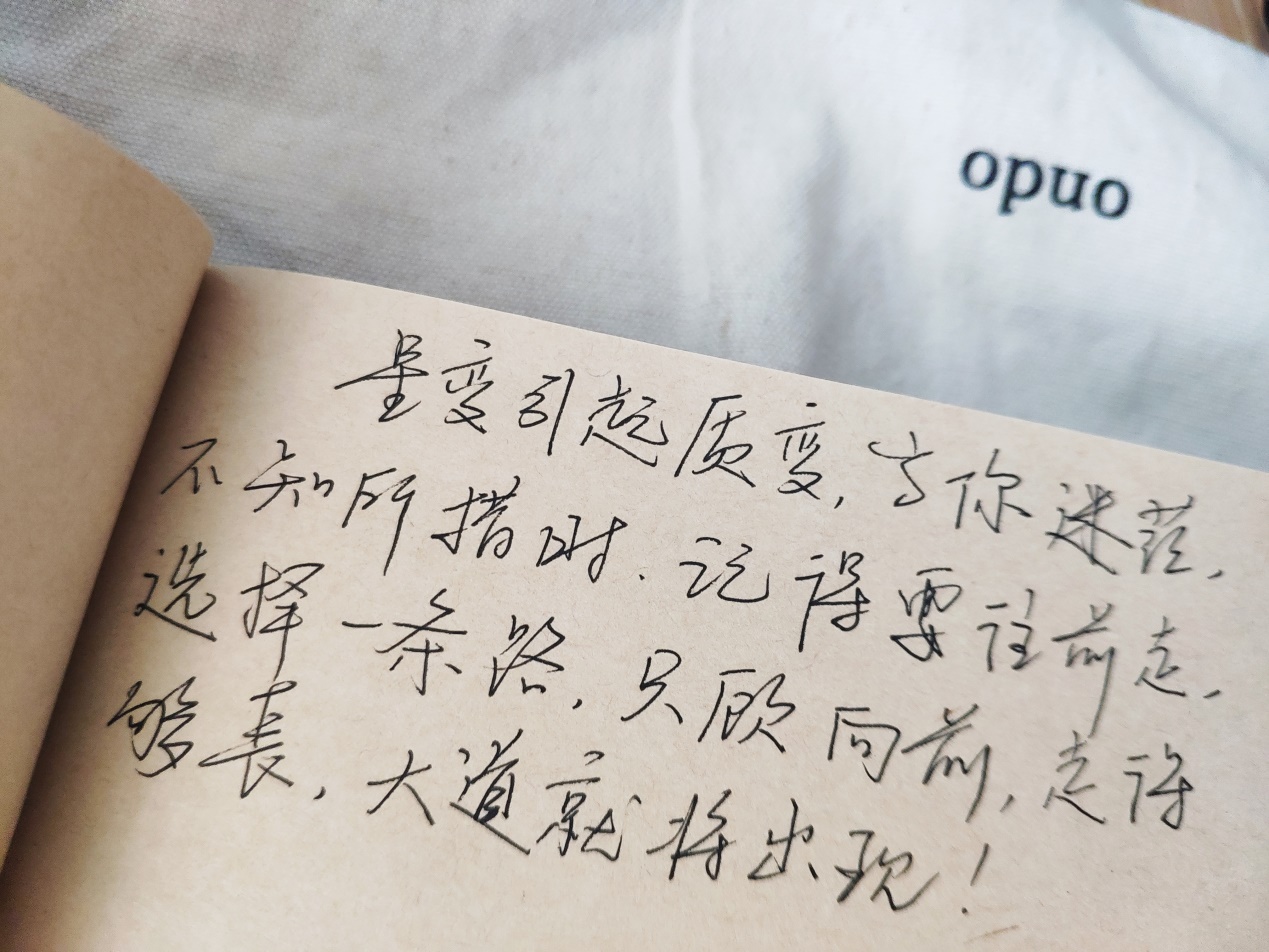 opuo
量变引起质变,当你迷茫,
不知所措时.记得要往前走,
选择一条路,只顾向前,走得
够長,大道就将出现!